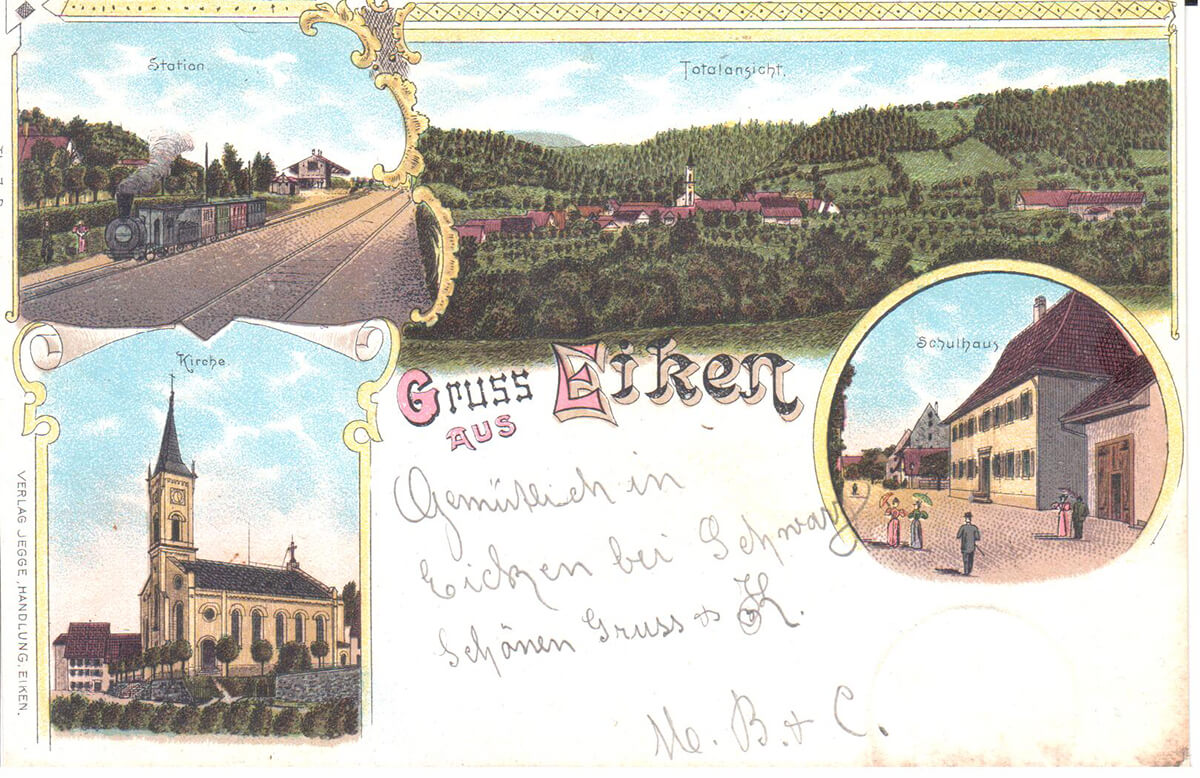 Station
Totalansicht.
Kirche
Schulhaus
Gruss
aus
Eiken
Gemütlich in
Eicken bei Schwarz
Schönen Gruss & K.
M. B. & C.
VERLAG JEGGE, HANDLUNG, EIKEN.